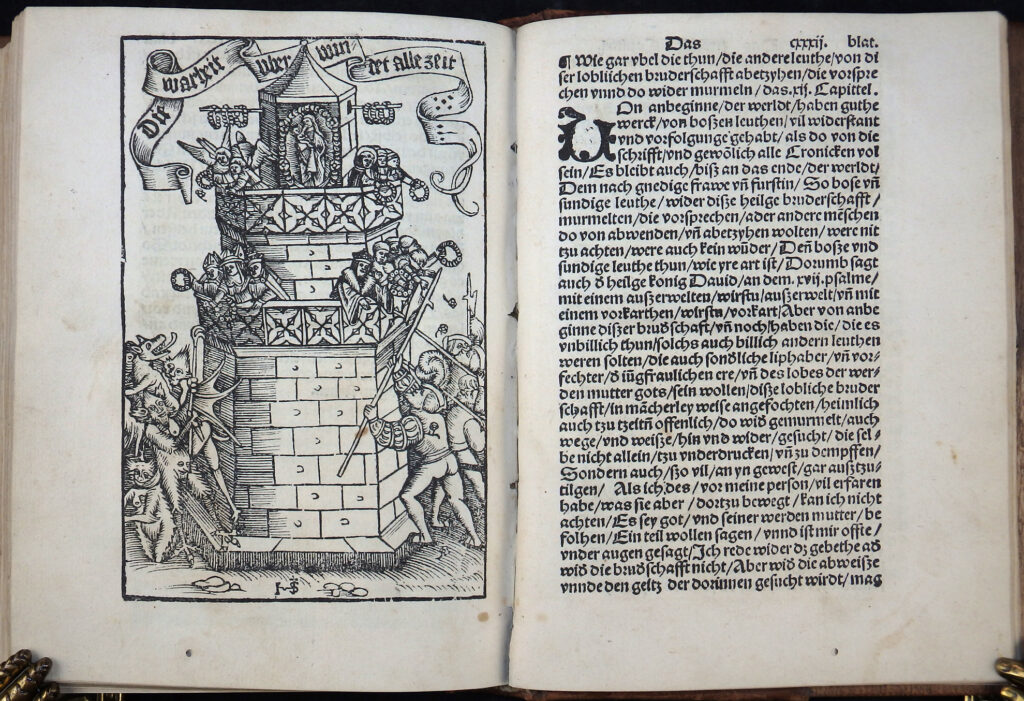 Die warheit uber win det alle zeit
Das cxxxij. blat.
¶ Wie gar vbel die thun/die andere leuthe/von di
ser lobliichen bruderschafft abetzyhen/die vorspre
chen vnnd do wider murmeln/das.xij.Capittel.
UOn anbeginne/der werldt/haben guthe
werck/von boßzen leuthen/vil widerstant
vnd vorfolgunge gehabt/als do von die
schrifft/vnd gewõlich alle Cronicken vol
sein/Es bleibt auch/bisz an das ende/der werldt/
Dem nach gnedige frawe vñ furstin/So bose vñ
sundige leuthe/wider disze heilge bruderschafft/
murmelten/die vorsprechen/ader andere mẽschen
do von abwenden/vñ abetzyhen wolten/were nit
tzu achten/were auch kein wũder/Deñ boßze vnd
sundige leuthe thun/wie yre art ist/Dorumb sagt
auch d heilge konig Dauid/an dem.xvij.psalme/
mit einem auszerwelten/wirstu/auszerwelt/vñ mit
einem vorkarthen/wirstu/vorkart/Aber von anbe
ginne diszer brudschaft/vñ noch/haben die/die es
vnbillich thun/solchs auch billich andern leuthen
weren solten/die auch sondliche liphaber/vñ vor-
fechter/d iũgfraulichen ere/vñ des lobes der wer-
den mutter gots/sein wollen/disze lobliche bruder
schafft/in mãcherley weise angefochten/heimlich
auch tzu tzeitñ offenlich/do wid gemurmelt/auch
wege/vnd weisze/hin vnd wider/gesucht/die sel-
be nicht allein/tzu vnderdrucken/vñ zu dempffen/
Sondern auch/szo vil/an yn gewest/gar ausztzu-
tilgen/ Als ich/des/vor meine person/vil erfaren
habe/was sie aber/dortzu bewegt/kan ich nicht
achten/Es sey got/vnd seiner werden mutter/be
folhen/Ein teil wollen sagen/vnnd ist mir offte/
vnder augen gesagt/Ich rede wider dz gebethe ad
wid die brudschafft nicht/Aber wid die abweisze
vnnde den geitz der dorinnen gesucht wirdt/mag